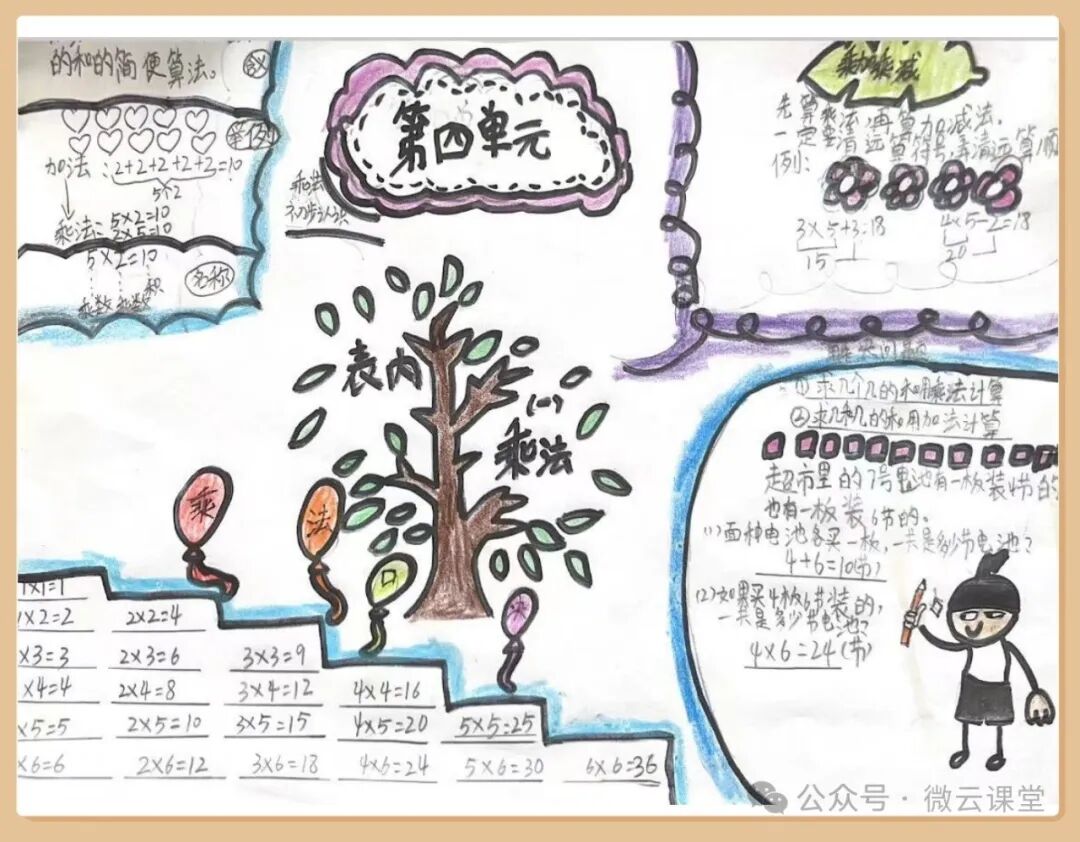 的和的简便算法。
含义
举例
加法：2+2+2+2+2=10
5个2
乘法：5×2=10
2×5=10
5×2=10
乘数 乘数 积
名称
第四单元
乘法
初步认识
乘加乘减
先算乘法,再算加减法,
一定要看清运算符号,弄清运算顺
例：
3×5+3=18
15
4×5-2=18
20
表内
乘法
(一)
乘
法
口
诀
1×1=1
1×2=2 2×2=4
×3=3 2×3=6 3×3=9
×4=4 2×4=8 3×4=12 4×4=16
×5=5 2×5=10 3×5=15 4×5=20 5×5=25
×6=6 2×6=12 3×6=18 4×6=24 5×6=30 6×6=36
解决问题
①求几个几的和用乘法计算
②求几和几的和用加法计算
超市里的7号电池有一板装4节的
也有一板装6节的。
(1)两种电池各买一板,一共是多少节电池?
4+6=10(节)
(2)如果买4板6节装的,
一共是多少节电池?
4×6=24(节)
公众号 · 微云课堂